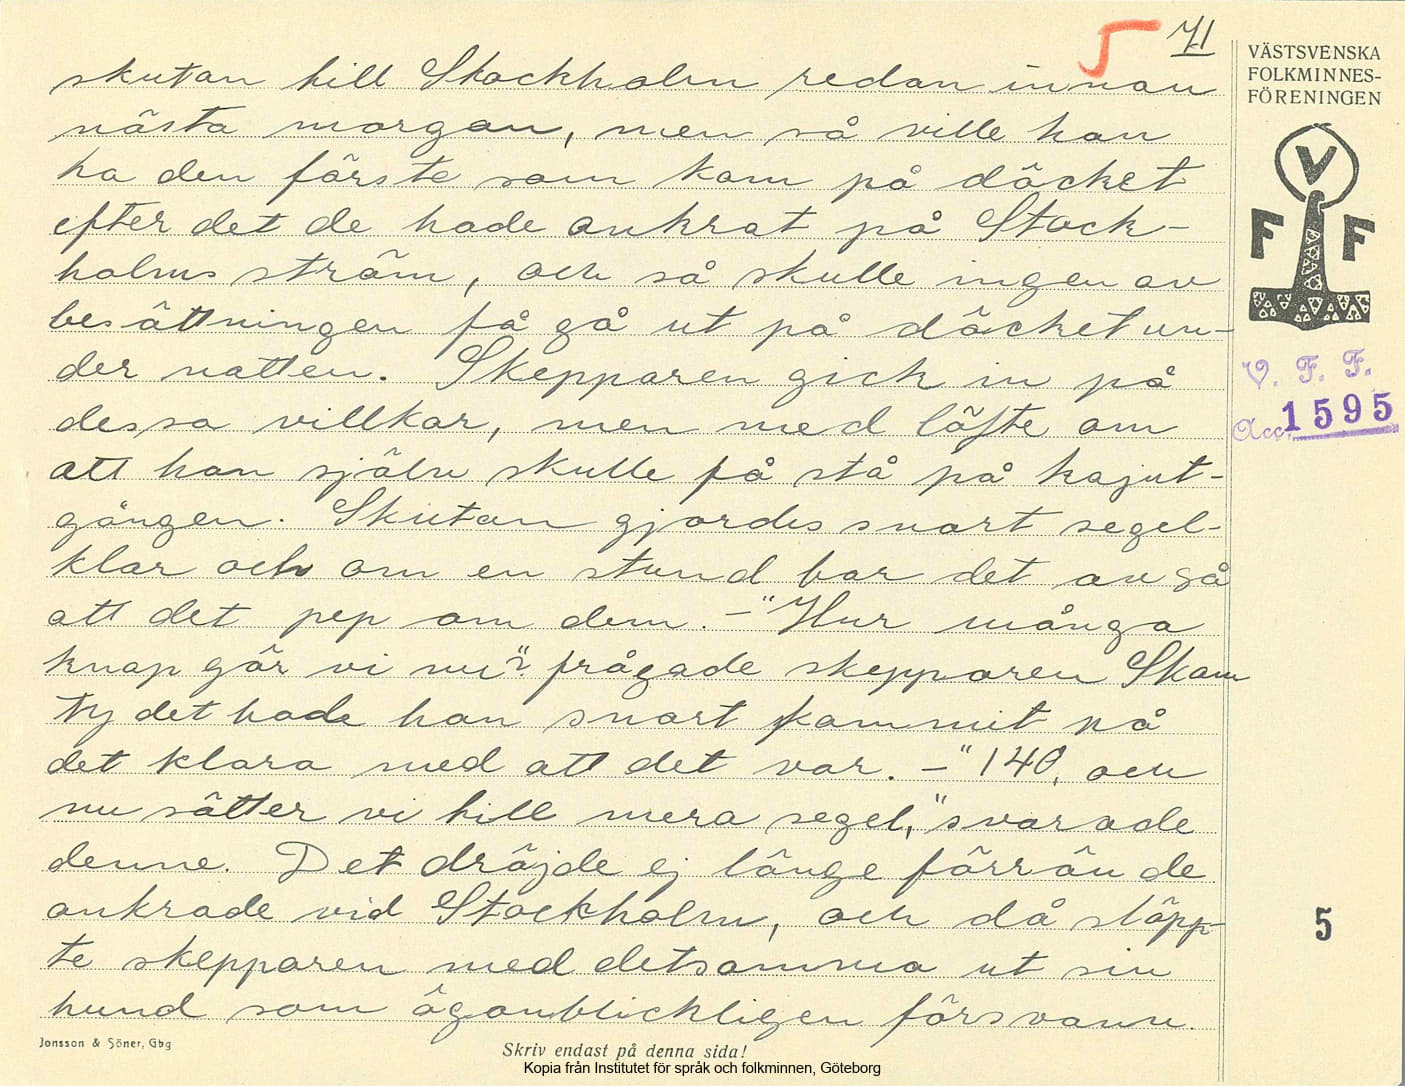 5 71
skutan till Stockholm redan innan
nästa morgon, men så ville han
ha den förste som kom på däcket
efter det de hade ankrat på Stock-
holms ström, och så skulle ingen av
besättningen få gå ut på däcket un-
der natten. Skepparen gick in på
dessa villkor, men med löfte om
att han själv skulle få stå på kajut-
gången. Skutan gjordes snart segel-
klar och om en stund bar det av så
att det pep om dem. –"Hur många
knap gör vi nu"? frågade skepparen Skam
ty det hade han snart kommit på
det klara med att det var. –"140, och
nu sätter vi till mera segel," svarade
denne. Det dröjde ej länge förrän de
ankrade vid Stockholm, och då släpp-
te skepparen med detsamma ut sin
hund som ögonblickligen försvann.
VÄSTSVENSKA
FOLKMINNES-
FÖRENINGEN
V
F F
V. F. F.
Acc. 1595
5
Jonsson & Söner, Gbg
Skriv endast på denna sida!
Kopia från Institutet för språk och folkminnen, Göteborg